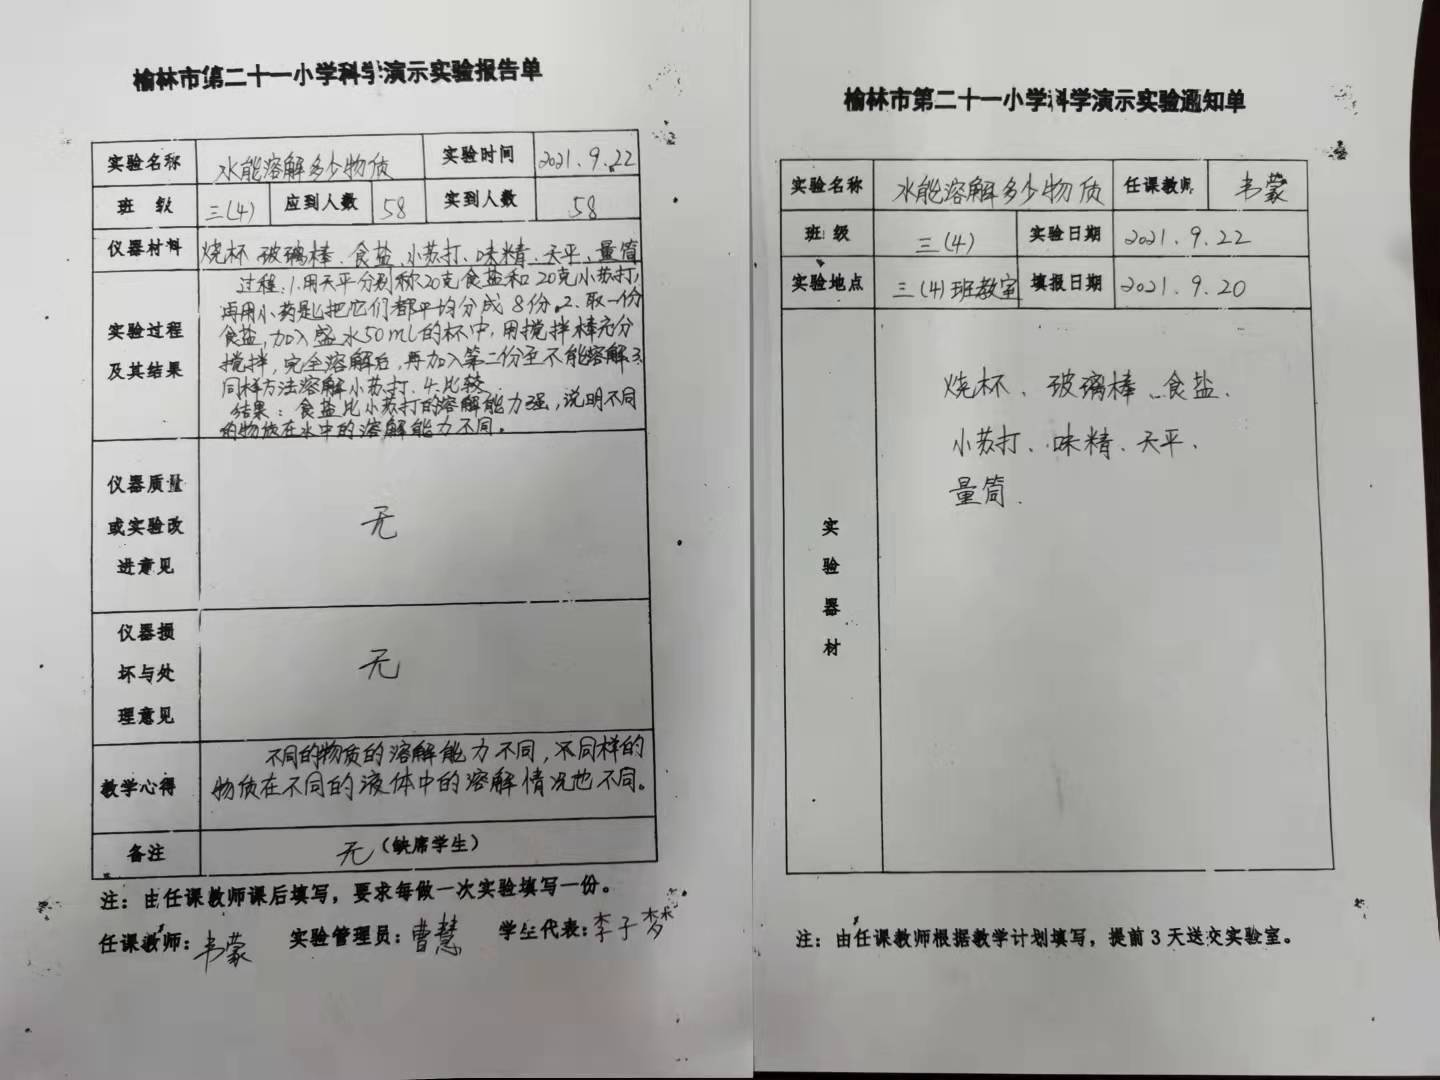 榆林市第二十一小学科学演示实验报告单
实验名称 水能溶解多少物质 实验时间 2021.9.22
班级 三(4) 应到人数 58 实到人数 58
仪器材料 烧杯 玻璃棒、食盐、小苏打、味精、天平、量筒
实验过程
及其结果
过程:1.用天平分别称20克食盐和20克小苏打,
再用小药匙把它们都平均分成8份。2.取一份
食盐,加入盛水50mL的杯中,用搅拌棒充分
搅拌,完全溶解后,再加入第二份至不能溶解.3.
同样方法溶解小苏打.4.比较
结果:食盐比小苏打的溶解能力强,说明不同
的物质在水中的溶解能力不同。
仪器质量
或实验改
进意见
无
仪器损
坏与处
理意见
无
教学心得
不同的物质的溶解能力不同,不同样的
物质在不同的液体中的溶解情况也不同。
备注 无(缺席学生)
注:由任课教师课后填写,要求每做一次实验填写一份。
任课教师:韦蒙 实验管理员:曹慧 学生代表:李子梦
榆林市第二十一小学科学演示实验通知单
实验名称 水能溶解多少物质 任课教师 韦蒙
班级 三(4) 实验日期 2021.9.22
实验地点 三(4)班教室 填报日期 2021.9.20
实
验
器
材
烧杯、玻璃棒、食盐、
小苏打、味精、天平、
量筒.
注:由任课教师根据教学计划填写,提前3天送交实验室。